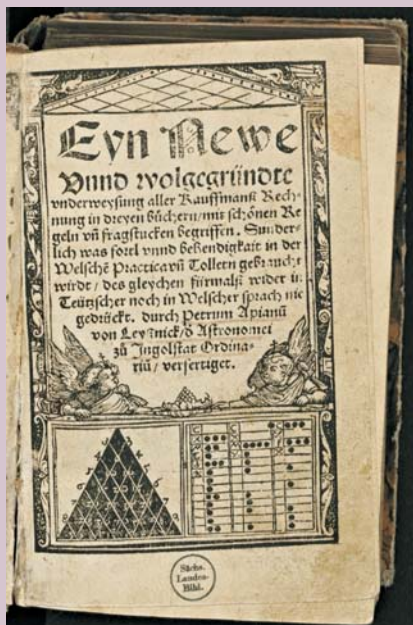 Eyn Newe
Vnnd wolgegründte
vnderweysung aller Kauffmanß Rech-
nung in dreyen büchern/mit schönen Re
geln vñ fragstucken begriffen. Sunder-
lich was fortl vnnd behendigkait in der
Welschẽ Practica vñ Tolletn gebraucht
wirdt/ des gleychen fürmalß wider in
Teützscher noch in Welscher sprach nie
gedrückt. durch Petrum Apianũ
von Leyßnick/ď Astronomei
zů Ingolstat Ordina-
riũ/ verfertiget.
Sächs.
Landes-
Bibl.